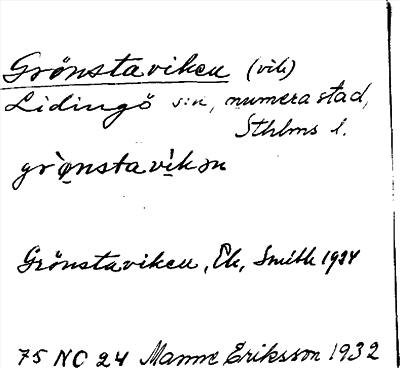 Grönstaviken (vik)
Lidingö s:n, numera stad,
Sthlms l.
grø̀nstavìkən
Grönstaviken, Ek, Smith 1924
75 NO 24 Manne Eriksson 1932